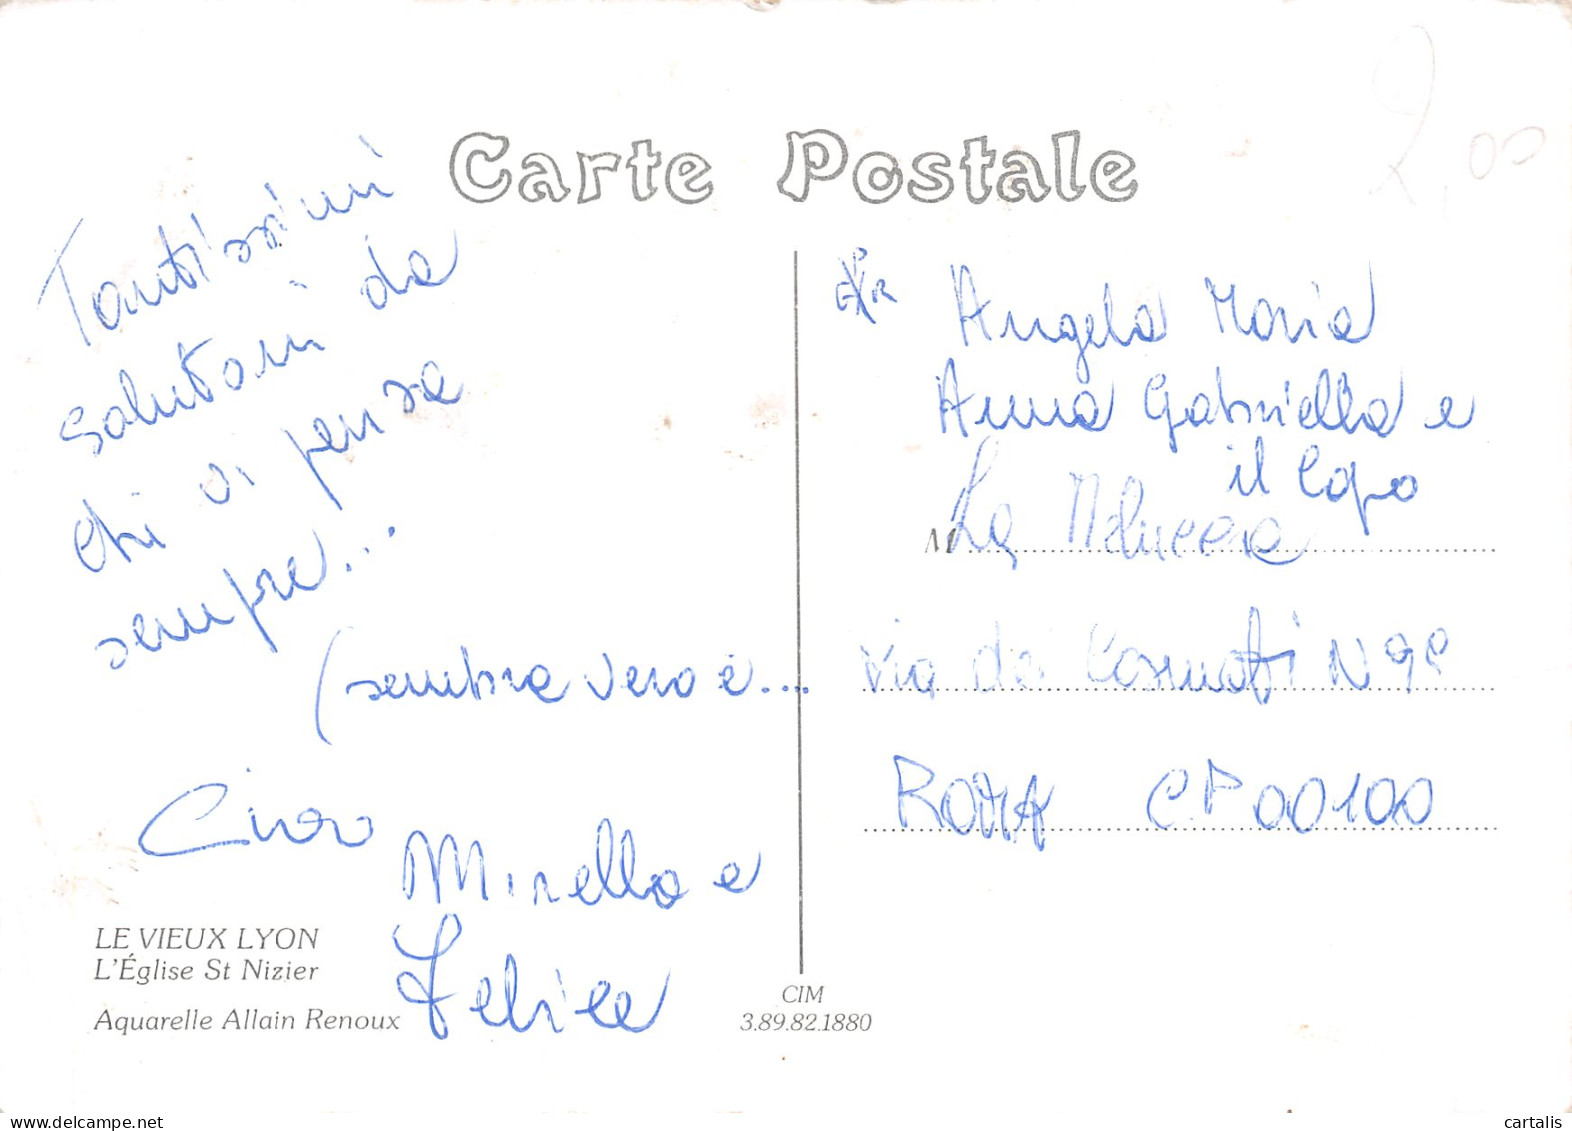 Carte Postale
2,00
Tantissimi
salutoni da
chi vi pensa
sempre...
(sembra vero e...
Ciao
Mirella e
Felice
Angela Maria
Anna Gabriella e
il Capo
M
La
via dei Cosmati N 9
ROMA CP 00100
LE VIEUX LYON
L'Église St Nizier
Aquarelle Allain Renoux
CIM
3.89.82.1880
cartalis